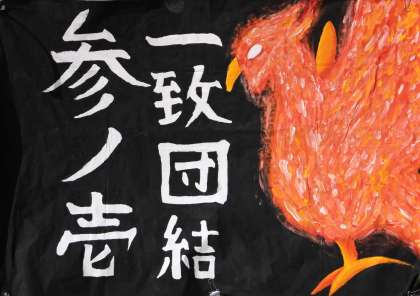 一致団結
参ノ壱